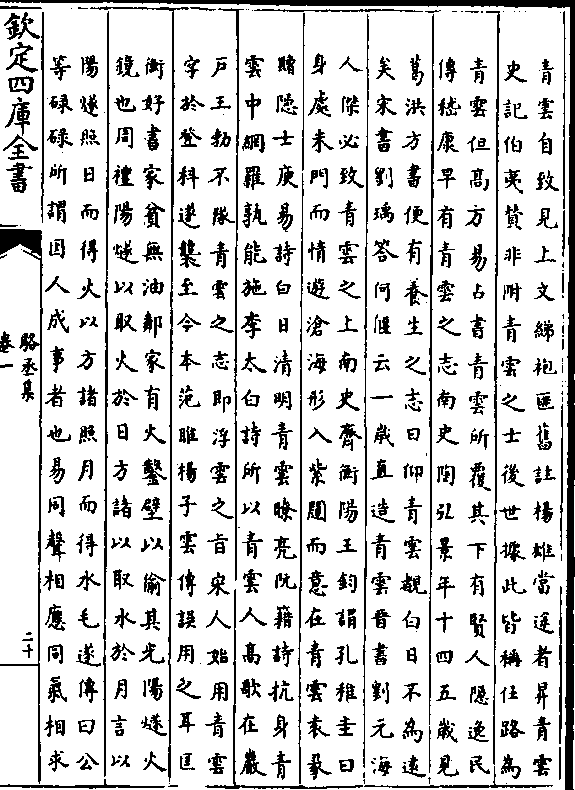 青雲自致見上文綈袍匪舊註楊雄當途者昇青雲
史記伯夷賛非附青雲之士後世據此皆稱仕路為
青雲但髙方易占書青雲所覆其下有賢人隠逸民
傳嵇康早有青雲之志南史陶弘景年十四五嵗見
葛洪方書便有養生之志曰仰青雲覩白日不為遠
矣宋書劉瑀答何偃云一嵗直造青雲晉書劉元海
人傑必致青雲之上南史齊衡陽王鈞謂孔稚圭曰
身處朱門而情遊滄海形入紫闥而意在青雲袁彖
贈隠士庾易詩白日清明青雲暸亮阮籍詩抗身青
雲中網羅孰能施李太白詩所以青雲人髙歌在巖
戸王勃不隊青雲之志即浮雲之旨宋人始用青雲
字於登科遂襲至今本范睢楊子雲傳誤用之耳匡
衡好書家貧無油鄰家有火鑿壁以偷其光陽燧火
鏡也周禮陽燧以取火於日方諸以取水於月言以
陽燧照日而得火以方諸照月而得水毛遂傳曰公
等碌碌所謂因人成事者也易同聲相應同氣相求
欽定四庫全書
駱丞集
卷一
二十